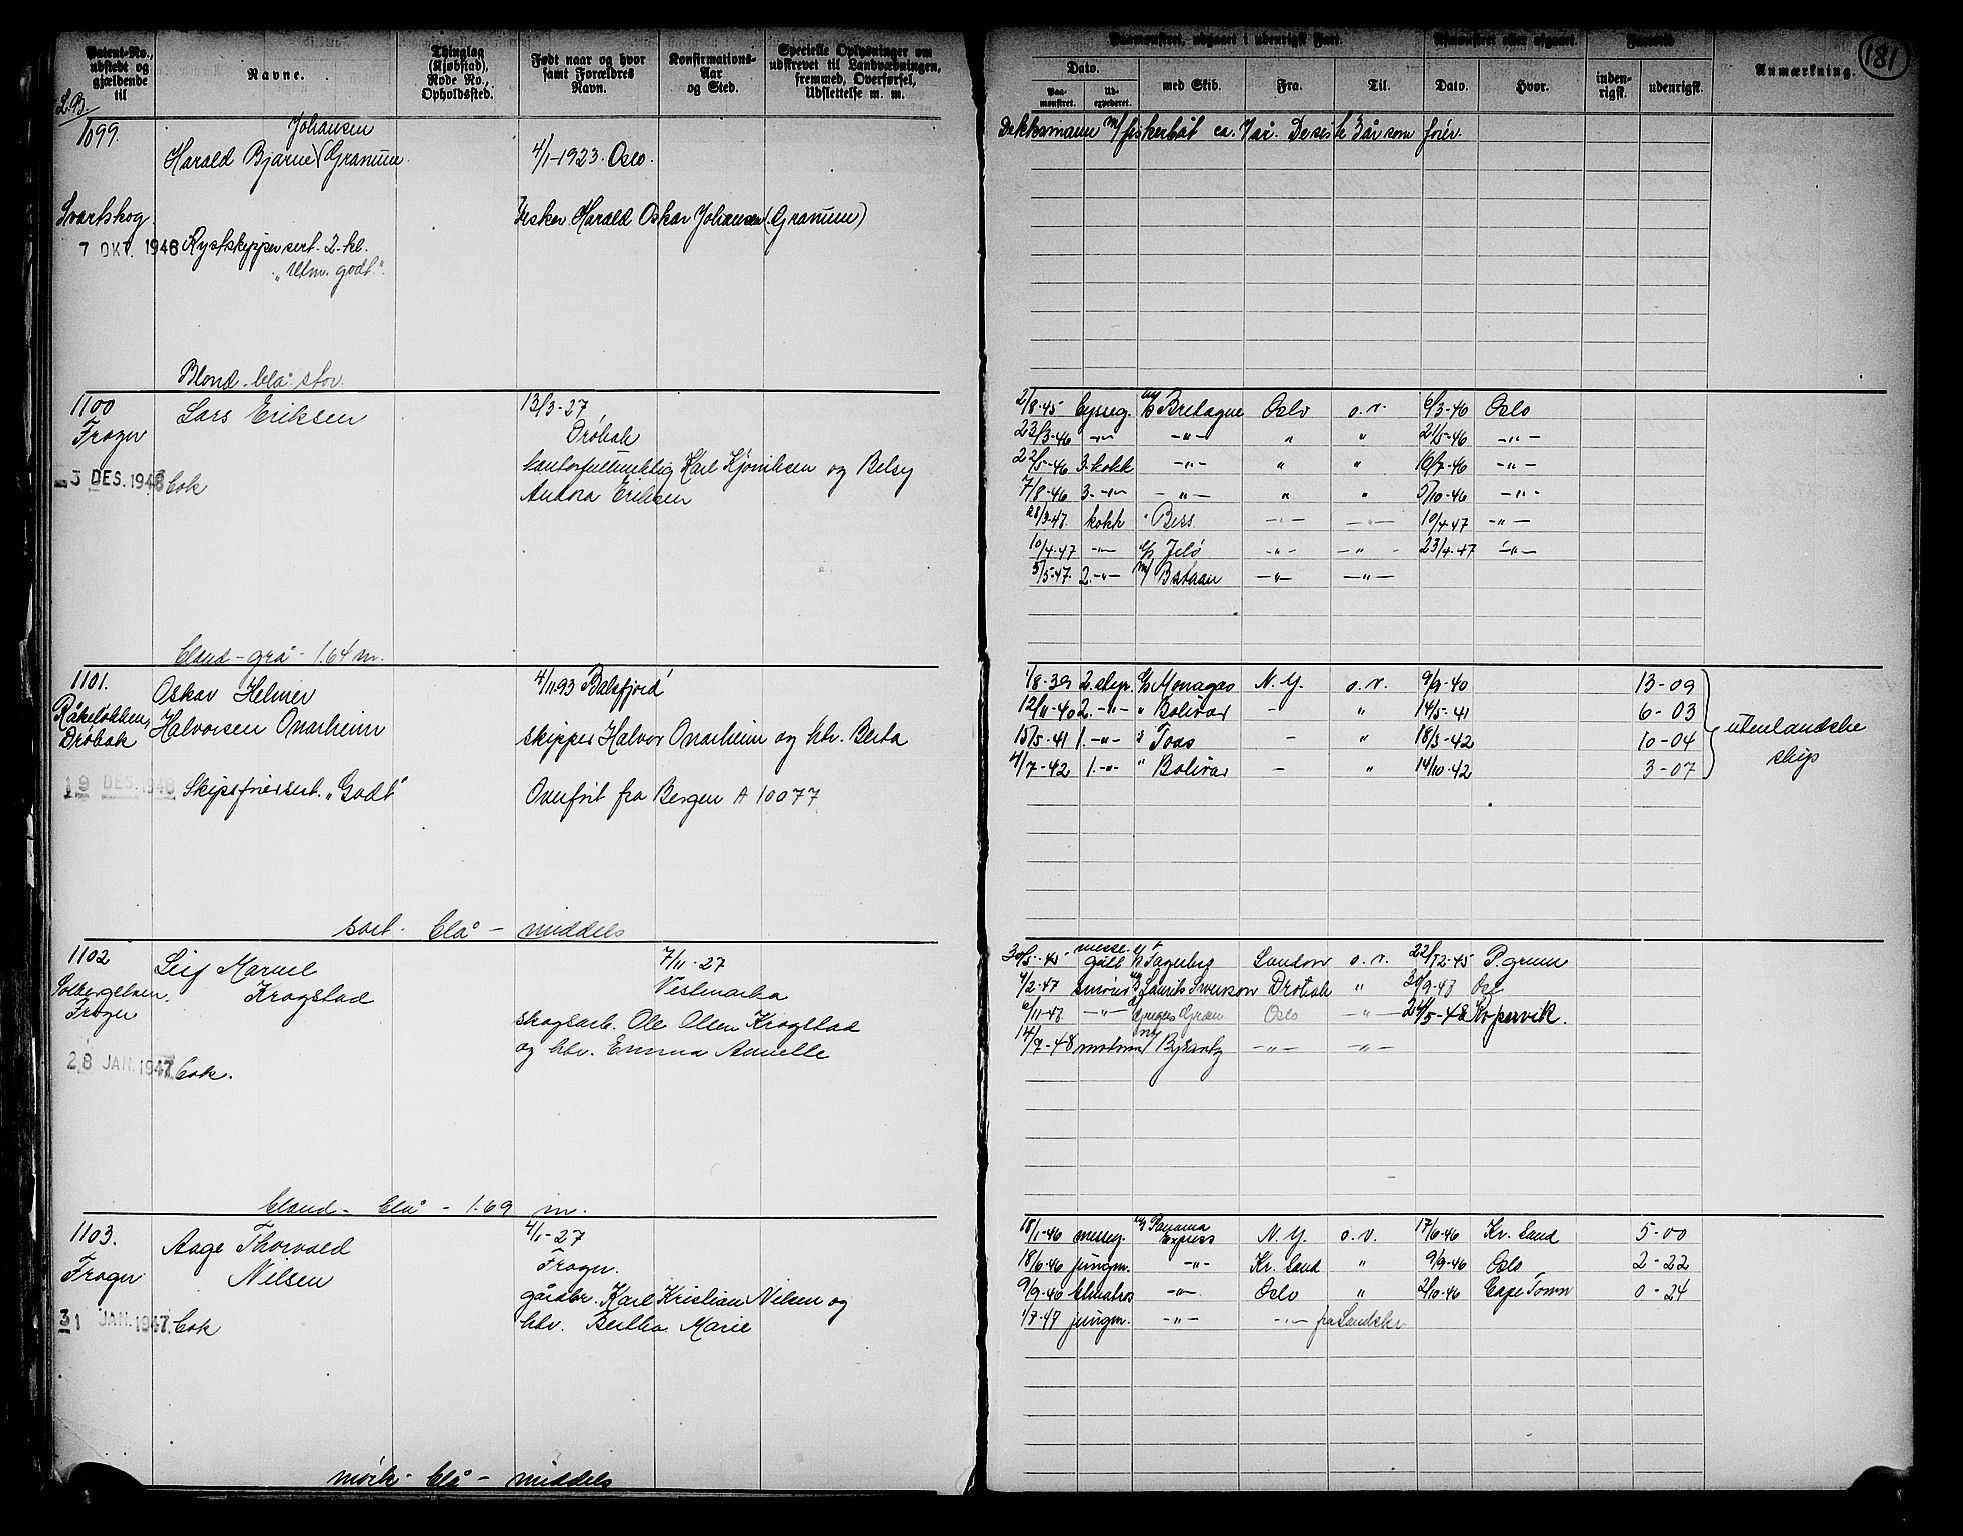 181
Patent-No., udstedt og gjældende til
Navne.
Thinglag (Kjøbstad), Rode No., Opholdssted.
Født naar og hvor samt Forældres Navn.
Konfirmations-Aar og Sted.
Specielle Oplysninger om udskrevet til Landværningen, fremmed, Overførsel, Udslettelse m. m.
Paamønstret, udgaaet i udenrigsk Fart.
Dato.
Paa-mønstret.
med Skib.
Fra.
Til.
Afmønstret eller afgaaet.
Dato.
Hvor.
Fartstid
inden-rigsk.
udenrigsk.
Anmærkning.
L.B.
1099.
Johansen
Harald Bjarne (Granum
4/1-1923. Oslo.
Dekksmann m/fiskerbåt ca. 7 år. De siste 3 år som fører.
Svartskog.
Fisker Harald Oskar Johansen (Granum)
7 OKT. 1946 Kystskippersert. 2. kl.
"Utm. godt".
Blond. blå. stor.
1100
Lars Eriksen
13/3-27
2/8-45 byssg. Bretagne Oslo o.v. 6/3-46 Oslo
Frogn
Drøbak
23/3-46 -"- -"- " " 21/5-46 -"-
kontorfullmektig Karl Kjøniksen og Betsy
22/5-46 3. kokk -"- " " 10/7-46 -"-
3 DES. 1946 bok
Andora Eriksen
7/8-46 3. -"- -"- " " 5/10-46 -"-
28/3-47 kokk " Bess -"- -"- 10/4 47 -"-
10/4-47 -"- Jelø -"- -"- 23/4-47 -"-
5/5-47. 2. -"- m/ Bataan -"- -"-
bland - grå - 1.64 m.
1101.
Oskar Helmer
4/11 93 Balsfjord
1/8-39 2. styr. Monagas N.Y. o.v. 9/9-40 13-09
Råkeløkken, Drøbak
Halvorsen Onarheim
12/11-40 2. -"- " Bolivar - " 14/5-41 6-03
skipper Halvor Onarheim og htr. Berta
15/5-41 1. -"- Toas - " 18/3-42 10-04
4/7-42 1. -"- " Bolivar - " 14/10-42 3-07
utenlandske
skip
19 DES. 1946 Skipsførersert. "Godt"
Overført fra Bergen A 10077
sort - blå - middels
1102
Leif Marvel
7/11-27
30/5-45 messe-gutt Fagerberg London o.v. 22/12-45 P. grunn
Frogn
Krogstad
Vestmarka
7/2-47 smører Laurits Swenson Drøbak " Osl
skogsarb. Ole Olsen Krogstad
-"- Oslo -"- 24/5-48 Kopervik.
og htr. Emma Amelie
14/9-48 Bysantz -"- -"-
28 JAN. 1947 bok.
bland - blå - 1.69 m.
1103.
Aage Thorvald
4/1-27
18/1-46 messeg. Panama Express N.Y. o.v. 17/6-46 Kr. Sand 5-00
Frogn
Nilsen
Frogn.
18/6-46 jungm. -"- Kr. Sand " 9/9-46 Oslo 2-22
gårdbr. Karl Kristian Nilsen og
9/9-46 -"- Oslo " 2/10-46 Cape Town 0-24
31 JAN. 1947. bok
htr. Bertha Marie
1/7-47 jungm. -"- -"-
mørk - blå - middels